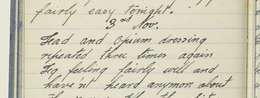 fairly easy tonight.
3rd Nov.
Lead and Opium dressing
repeated three times again
Leg feeling fairly well and
haven't heard anymore about